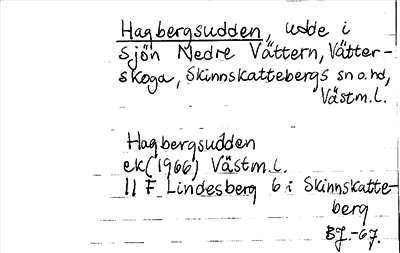 Hagbergsudden, udde i
sjön Nedre Vättern, Vätter-
skoga, Skinnskattebergs sn o. hd,
Västm.l.
Hagbergsudden
ek (1966) Västm.l.
11 F Lindesberg 6 i Skinnskatte-
berg
BJ.-67.